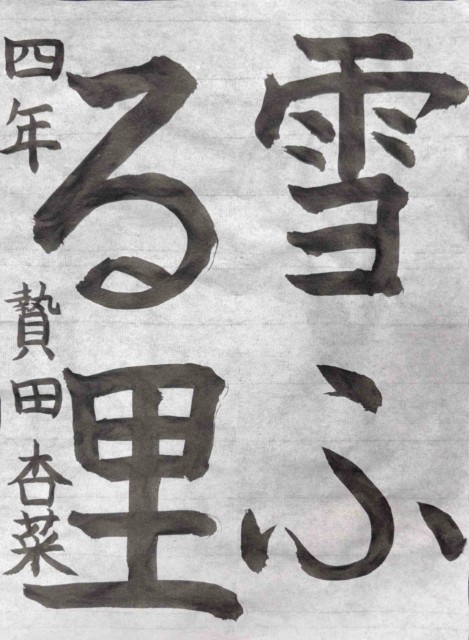 雪ふ
る里
四年 贄田杏菜